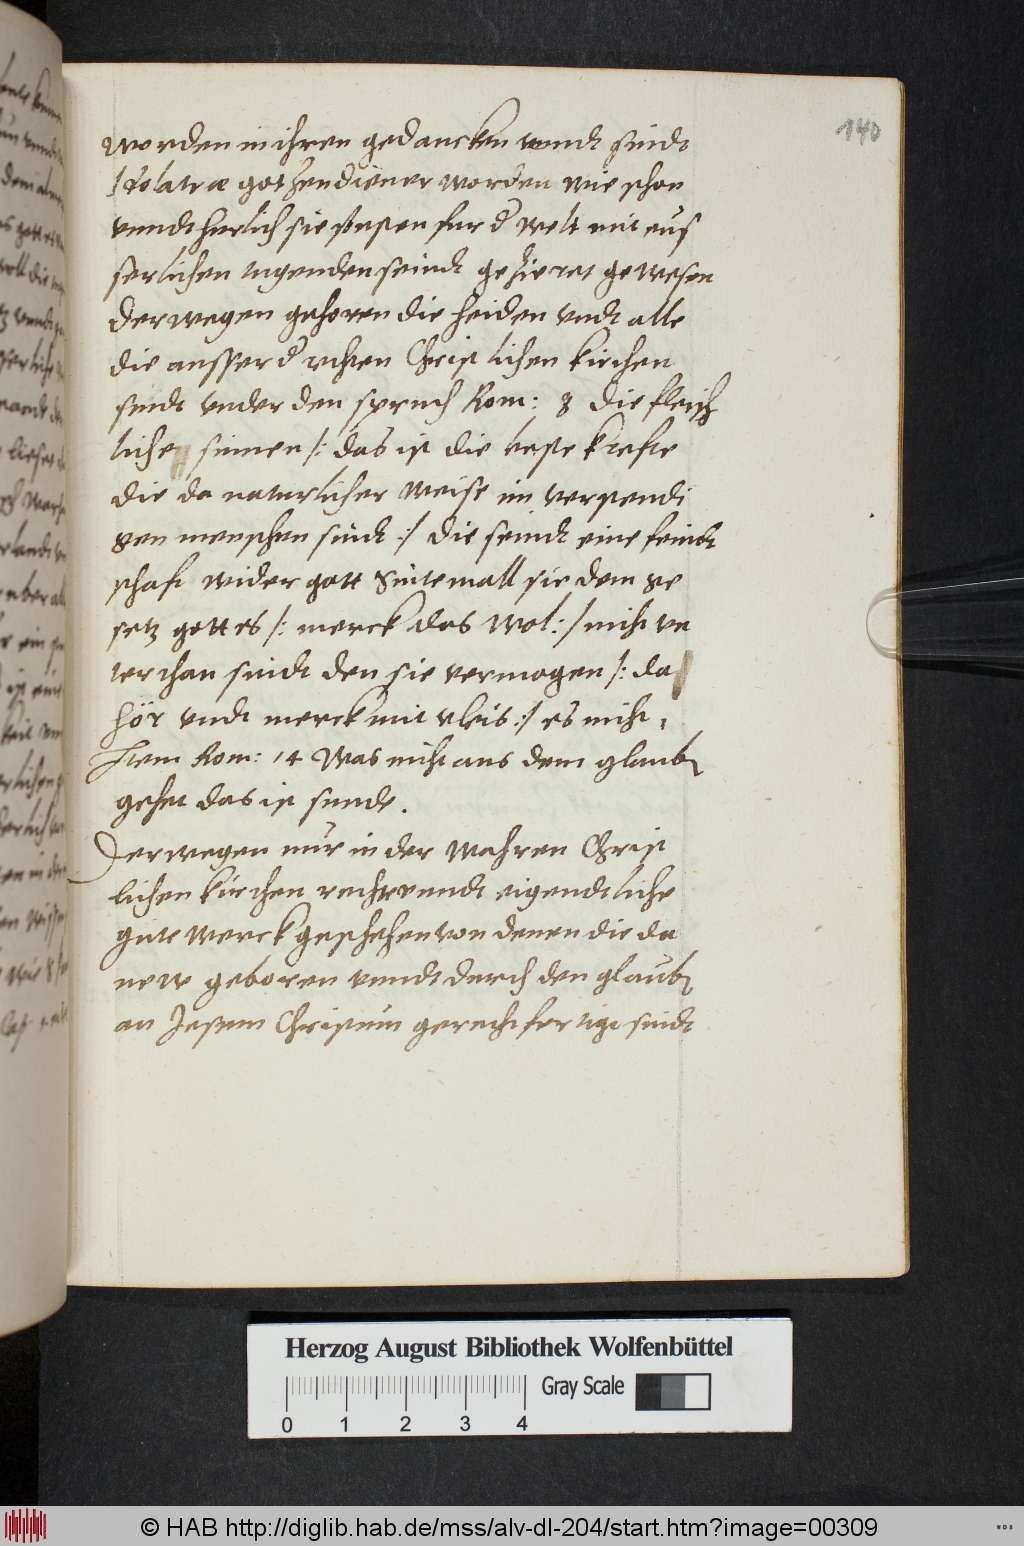 140
worden in ihren gedancken vnndt sindt
Idolatræ gothendiener worden wie schon
vnndt herlich sie sunsten fur d' welt mit eus
serlichen tugenden seindt gezieret gewesen
Derwegen gehoren die heiden vndt alle
die ausser d' rechten Christlichen kirchen
sindt vnder den spruch Rom: 8 die fleisch
liche sinnen /: das ist die beste krefte
die da naturlicher weise im verstendi
gen menschen sindt :/ die seindt eine feindt
schaft wider gott Sintemall sie dem ge
setz gottes /: merck das wol :/ nicht vn
terthan sindt den sie vermogen /: da
hör vndt merck mit vleis :/ es nicht,
Item Rom: 14 Was nicht aus dem glaub
gehet das ist sunde.
Derwegen nur in der wahren Christ
lichen kirchen recht vnndt eigendtliche
gute werck geschehen von denen die da
new geboren vnndt durch den glaub
an Jesum Christum gerechtfertigt sindt
Herzog August Bibliothek Wolfenbüttel
Gray Scale
0 1 2 3 4
© HAB http://diglib.hab.de/mss/alv-dl-204/start.htm?image=00309